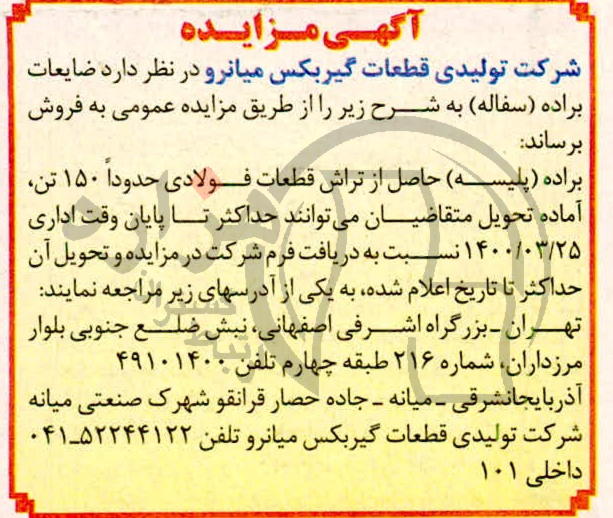 آگهی مزایده
شرکت تولیدی قطعات گیربکس میانرو در نظر دارد ضایعات
براده (سفاله) به شرح زیر را از طریق مزایده عمومی به فروش
برساند:
براده (پلیسه) حاصل از تراش قطعات فولادی حدوداً ۱۵۰ تن،
آماده تحویل متقاضیان می‌توانند حداکثر تا پایان وقت اداری
۱۴۰۰/۰۳/۲۵ نسبت به دریافت فرم شرکت در مزایده و تحویل آن
حداکثر تا تاریخ اعلام شده، به یکی از آدرسهای زیر مراجعه نمایند:
تهران ـ بزرگراه اشرفی اصفهانی، نبش ضلع جنوبی بلوار
مرزداران، شماره ۲۱۶ طبقه چهارم تلفن ۴۹۱۰۱۴۰۰
آذربایجانشرقی ـ میانه ـ جاده حصار قرانقو شهرک صنعتی میانه
شرکت تولیدی قطعات گیربکس میانرو تلفن ۵۲۲۴۴۱۲۲ـ۰۴۱
داخلی ۱۰۱